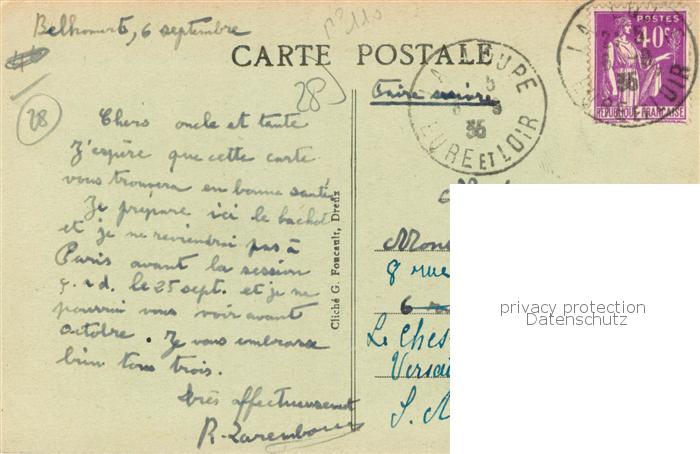 Belhomert, 6 septembre
N° 110
CARTE POSTALE
28
28
Faire suivre
LA LOUPE
35
EURE ET LOIR
POSTES
40c
REPUBLIQUE FRANÇAISE
35
Chers oncle et tante
J'espère que cette carte
vous trouvera en bonne santé.
Je prépare ici le bachot
et je ne reviendrai pas à
Paris avant la session
c.a.d. le 25 sept. et je ne
pourrai vous voir avant
octobre. Je vous embrasse
bien tous trois.
Très affectueusement
Cliché G. Foucault, Dreux
8 rue
6
Le Ches
Versai
S.
privacy protection
Datenschutz